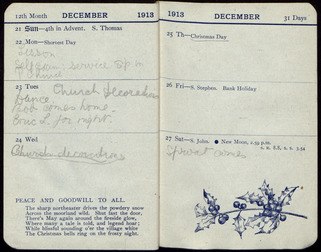 12th Month DECEMBER 1913
21 Sun—4th in Advent. S. Thomas
22 Mon—Shortest Day
Lesson
service 5 p.m.
23 Tues Church decorations
Dance.
Bob comes home.
for night.
24 Wed
Church decorations
PEACE AND GOODWILL TO ALL.
The sharp northeaster drives the powdery snow
Across the moorland wild. Shut fast the door,
There's May again around the fireside glow,
Where many a tale is told, and legend hoar;
While blissful sounding o'er the village white
The Christmas bells ring on the frosty night.
1913 DECEMBER 31 Days
25 Th—Christmas Day
26 Fri—S. Stephen. Bank Holiday
27 Sat—S. John. ● New Moon, 2.59 p.m.